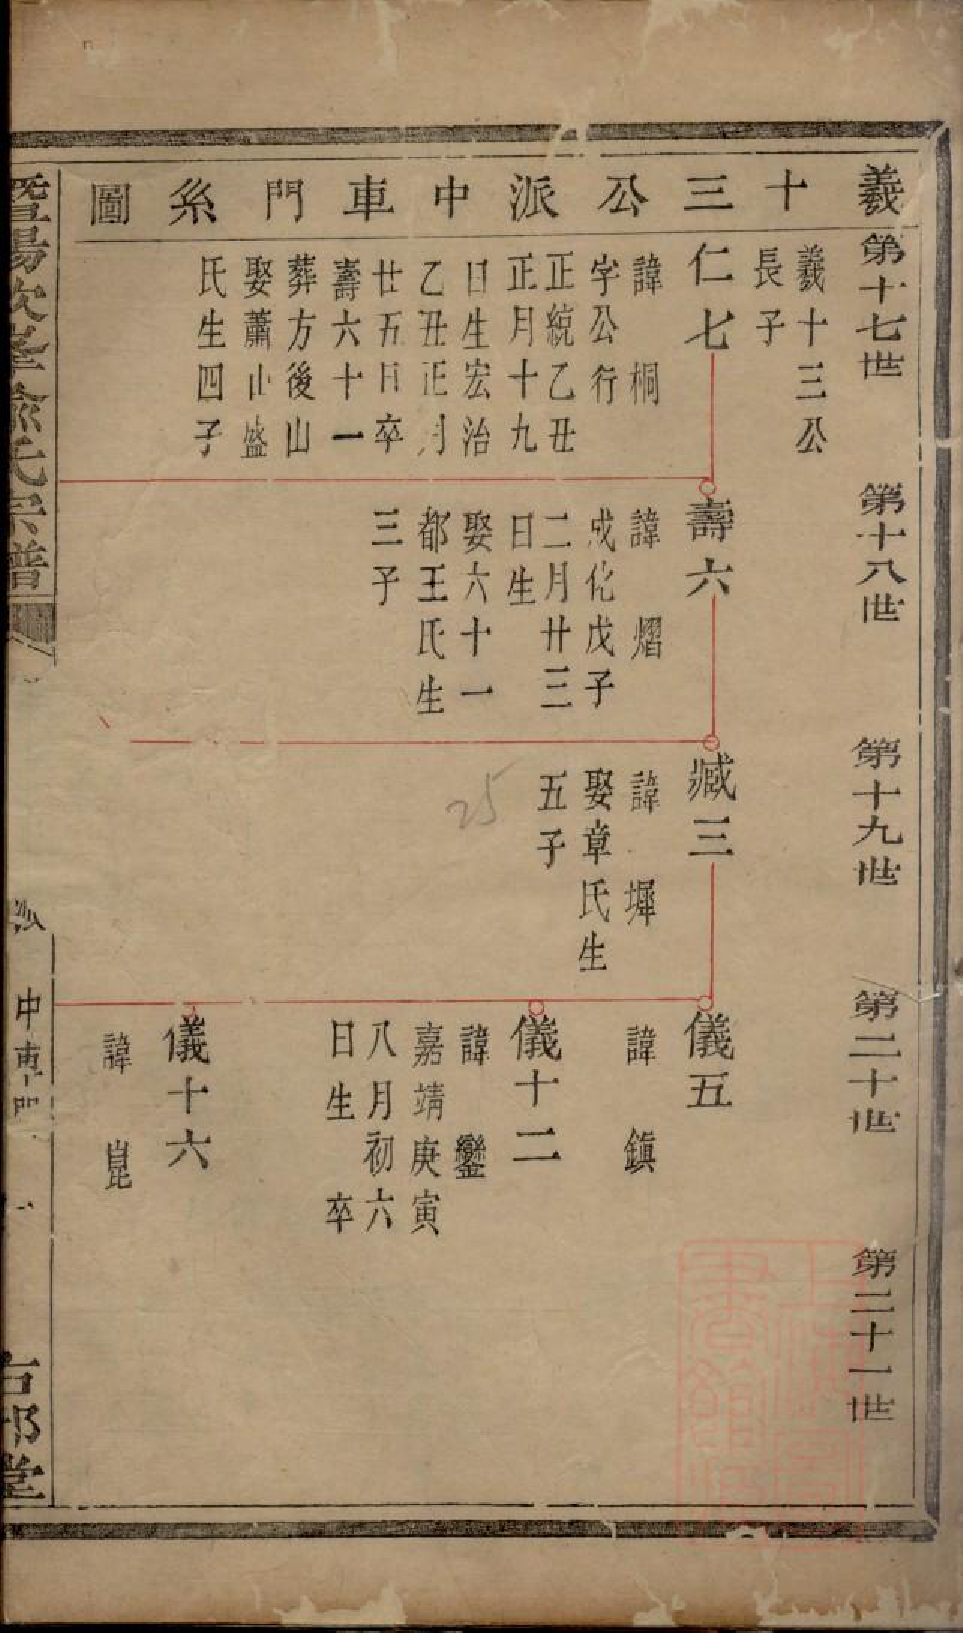 羲十三公派中車門系圖
第十七世
羲十三公
長子
仁七
諱桐
字公行
正統乙丑
正月十九
日生宏治
乙丑正月
廿五日卒
壽六十一
葬方後山
娶蕭山盛
氏生四子
第十八世
壽六
諱熠
成化戊子
二月廿三
日生
娶六十一
都王氏生
三子
第十九世
臧三
諱墀
娶章氏生
五子
25
第二十世
儀五
諱鎮
儀十二
諱鑾
嘉靖庚寅
八月初六
日生卒
儀十六
諱崑
第二十一世
暨陽次峯俞氏宗譜
中車門
古邨堂
上海圖書館藏